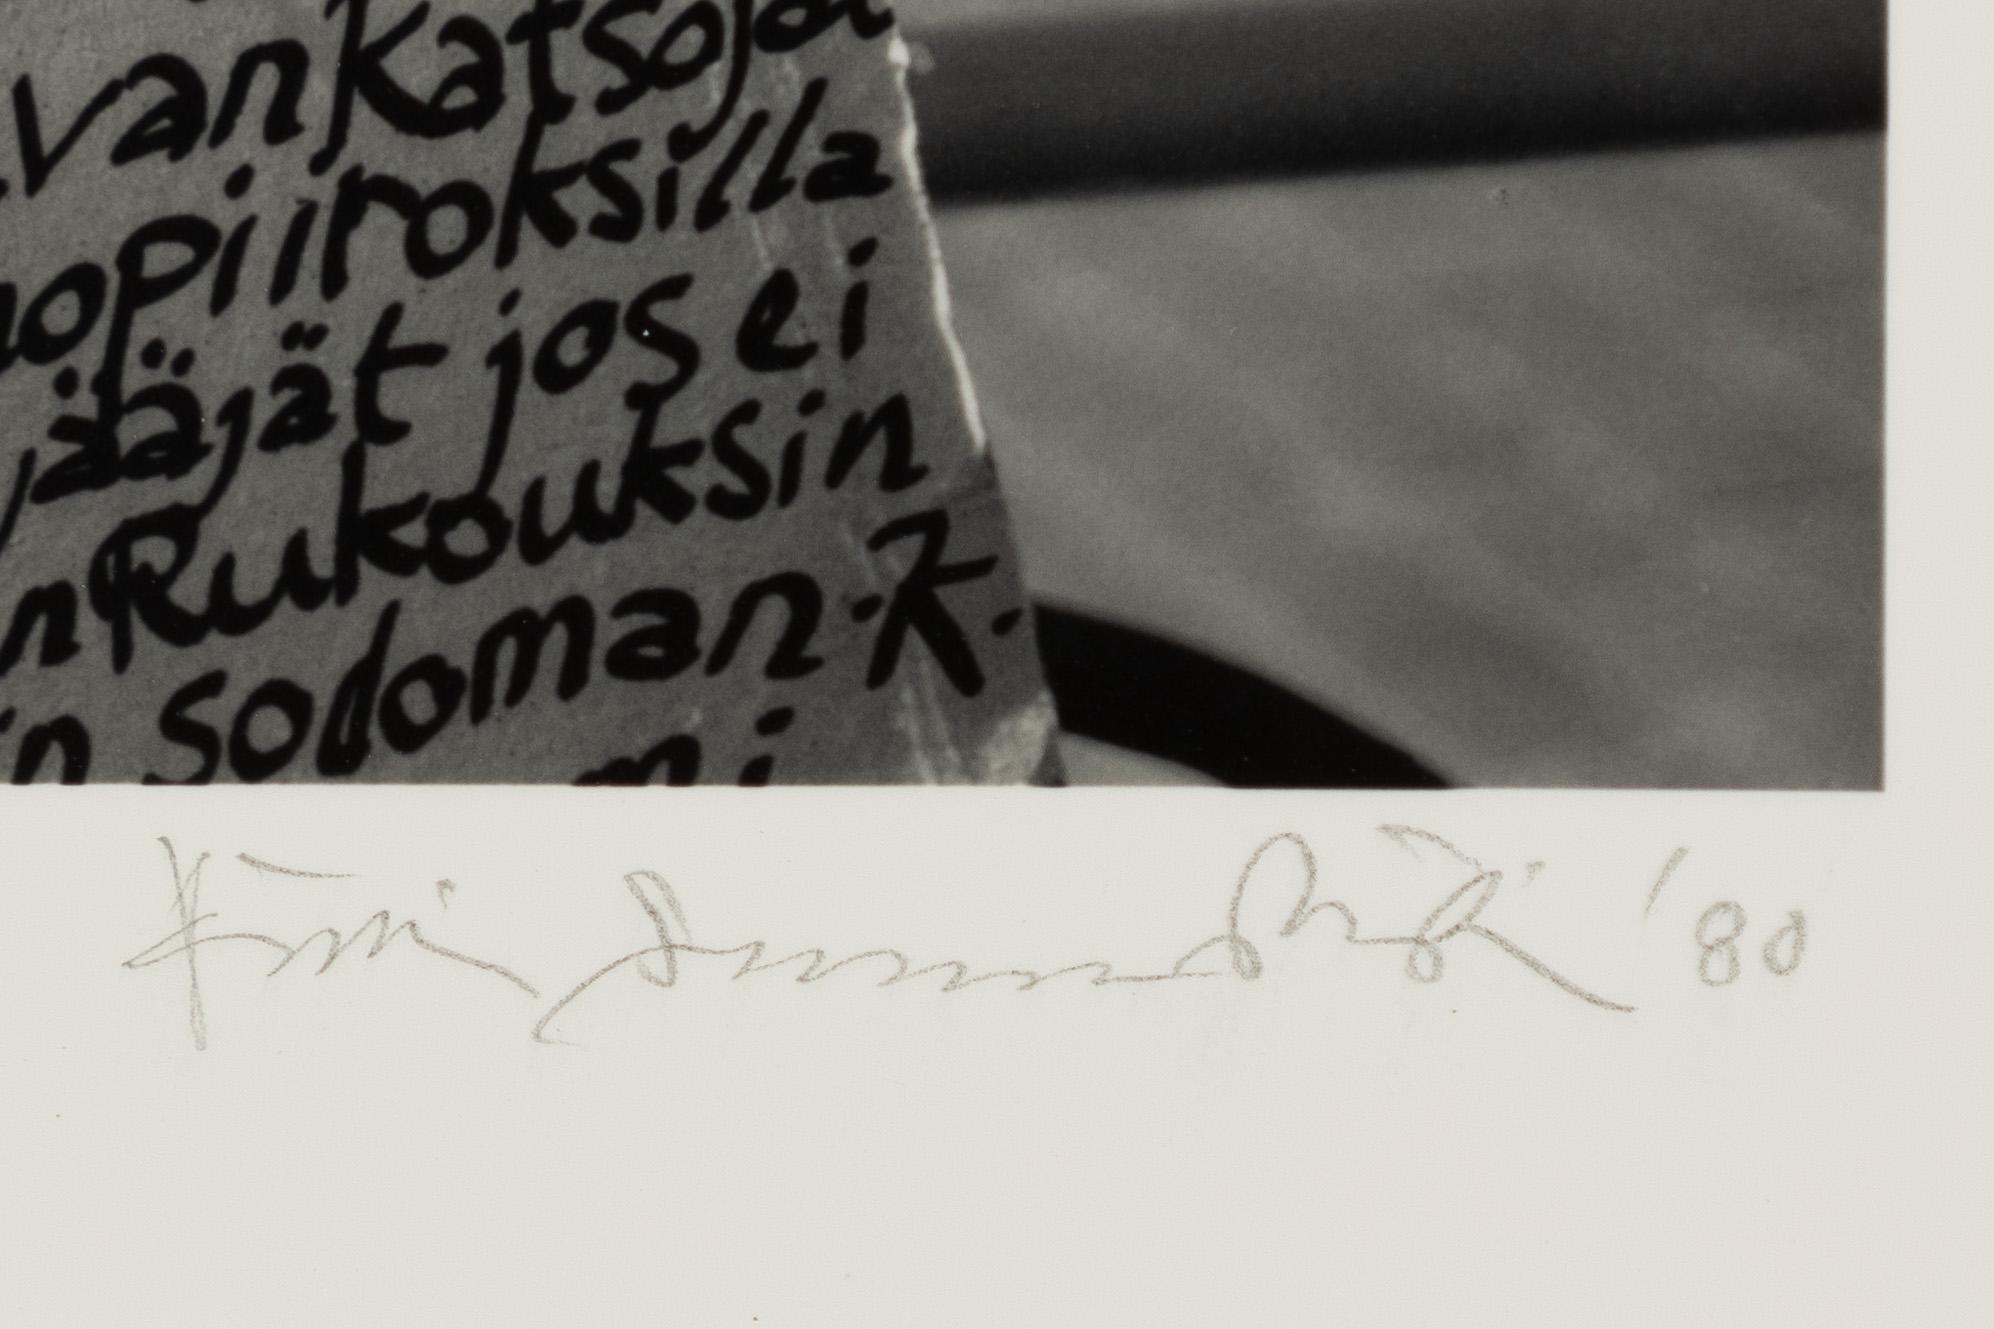 van katsoja
opiiroksilla
jääjät jos ei
n Rukouksin
in sodoman·K·
mi
'80